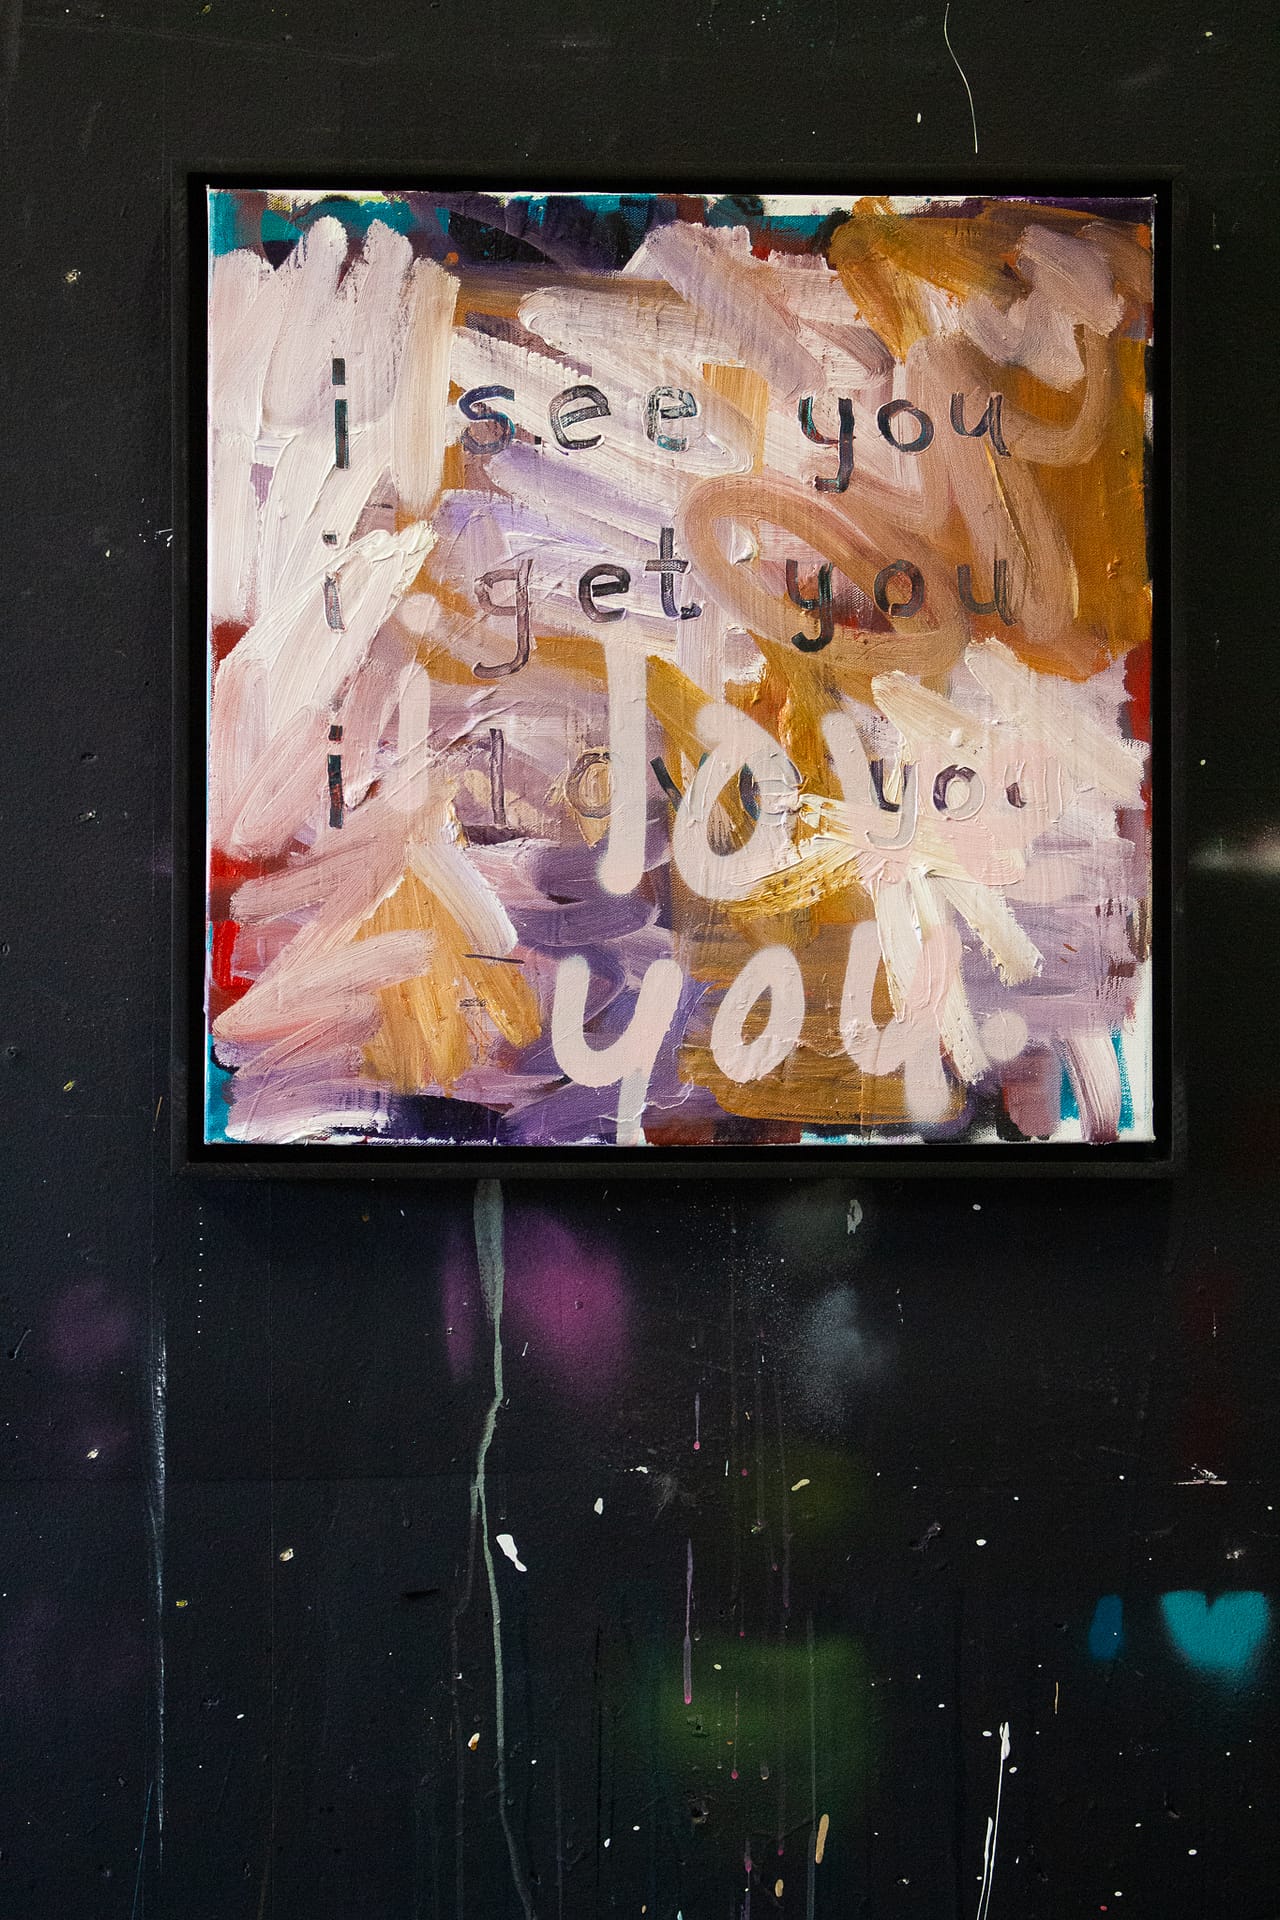 i see you
i get you
i love you
you.